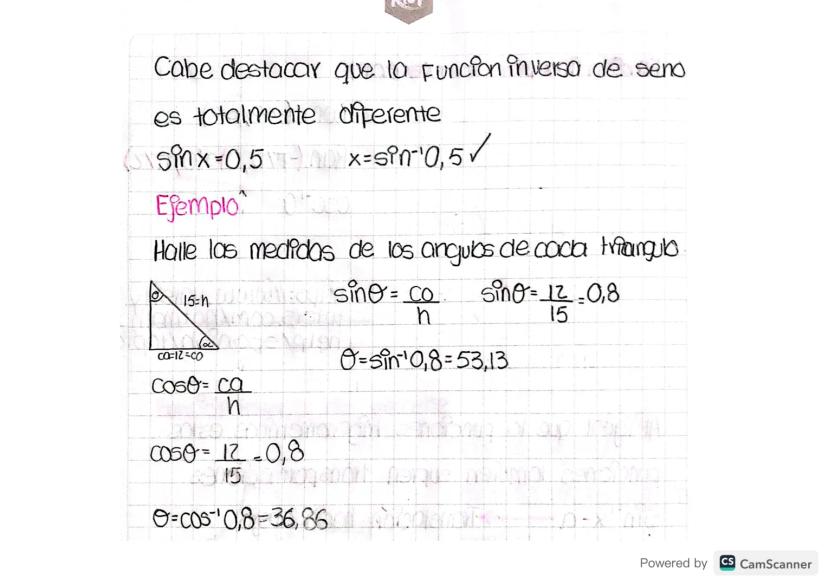 Cabe destacar que la Funcion inversa de seno
es totalmente diferente
sin x = 0,5 x = sin⁻¹ 0,5 ✓
Ejemplo
Halle las medidas de los angulos de cada triangulo
θ 15=h
α
ca=12=co
sinθ = co/h sinθ = 12/15 = 0,8
θ = sin⁻¹ 0,8 = 53,13
cosθ = ca/h
cosθ = 12/15 = 0,8
θ = cos⁻¹ 0,8 = 36,86
Powered by CS CamScanner